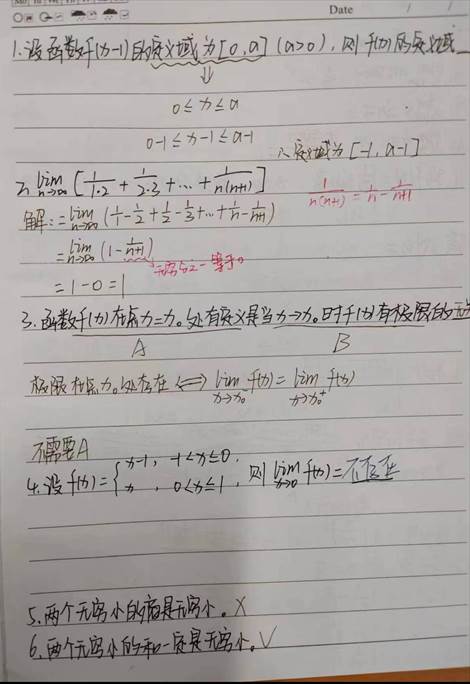 Date
1.设函数f(x-1)的定义域为[0,a](a>0),则f(x)的定义域
⇓
0≤x≤a
0-1≤x-1≤a-1
∴定义域为[-1,a-1]
2. lim n→∞ [1/1·2 + 1/2·3 + … + 1/n(n+1)]
1/n(n+1) = 1/n - 1/n+1
解:= lim n→∞ (1/1 - 1/2 + 1/2 - 1/3 + … + 1/n - 1/n+1)
= lim n→∞ (1 - 1/n+1)
= 1-0=1
3.函数f(x)在点x=x₀处有定义是当x→x₀时f(x)有极限的无
A B
极限在点x₀处存在 ⇔ lim x→x₀⁻ f(x) = lim x→x₀⁺ f(x)
不需要A
4.设f(x)={x-1, -1<x≤0; x, 0<x≤1, 则 lim x→0 f(x)=不存在
5.两个无穷小的商是无穷小。×
6.两个无穷小的和一定是无穷小。√